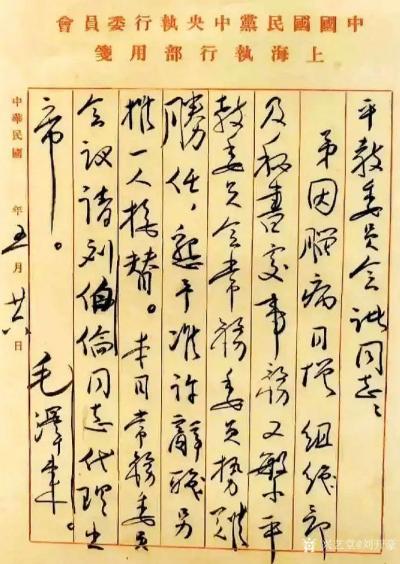 中國國民黨中央執行委員會
上海執行部用箋
平教委员会诸同志：
弟因腦病日增组织部
及秘書处事務又繁平
教委员会常務委员势難
勝任，懇予准许辭職另
推一人接替。本日常務委员
会议请刘伯倫同志代理出
席。
毛澤東。
中華民國 年五月廿六日